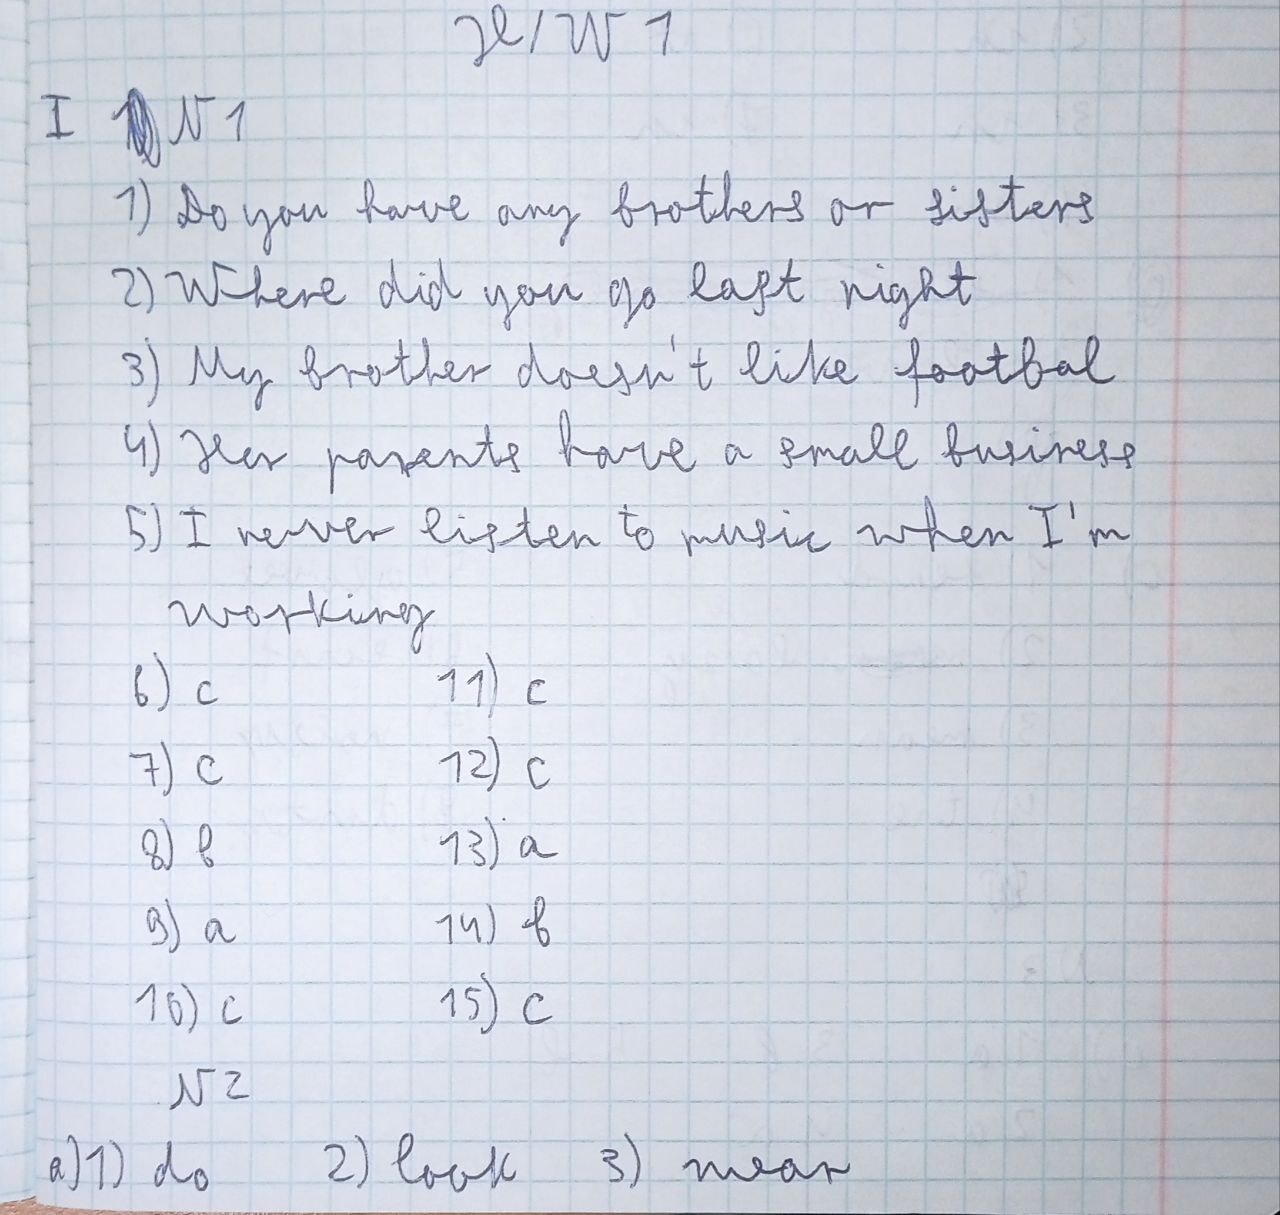 H/W 1
I N1
1) Do you have any brothers or sisters
2) Where did you go last night
3) My brother doesn't like footbal
4) Her parents have a small business
5) I never listen to music when I'm
working
6) c 11) c
7) c 12) c
8) b 13) a
9) a 14) b
10) c 15) c
N2
a) 1) do 2) look 3) mean